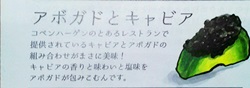 アボガドとキャビア
コペンハーゲンのとあるレストランで
提供されているキャビアとアボガドの
組み合わせがまさに美味！
キャビアの香りと味わいと塩味を
アボガドが包みこむんです。